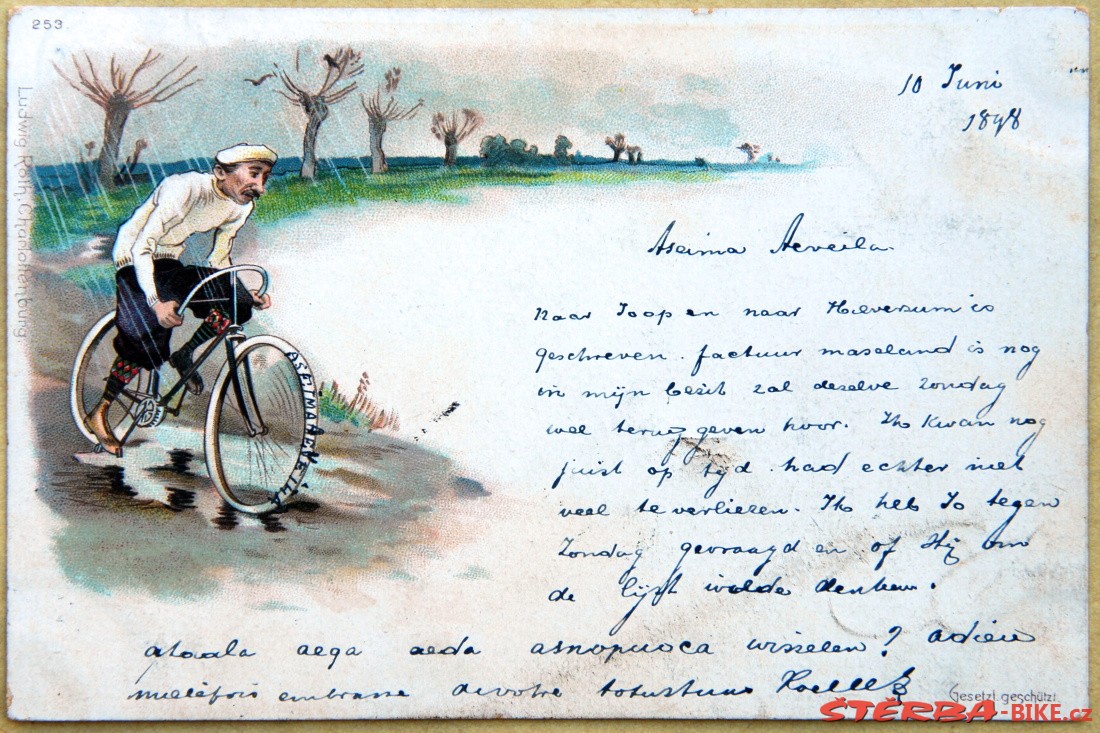 253.
Ludwig Roth, Charlottenburg
10 Juni
1898
Aseima Aeveila.
Naar Joop en naar Hilversum is
geschreven. factuur maseland is nog
in mijn bezit zal dezelve Zondag
wel terug geven hoor. Ik kwam nog
juist op tyd. had echter niet
veel te verliezen. Ik heb Jo tegen
Zondag gevraagd en of Hij om
de lijst wilde denken.
aega aeda wisselen? adieu
millefois embrasse
ASEIMA AEVEILA
Gesetzl. geschützt.
ŠTĚRBA-BIKE.cz